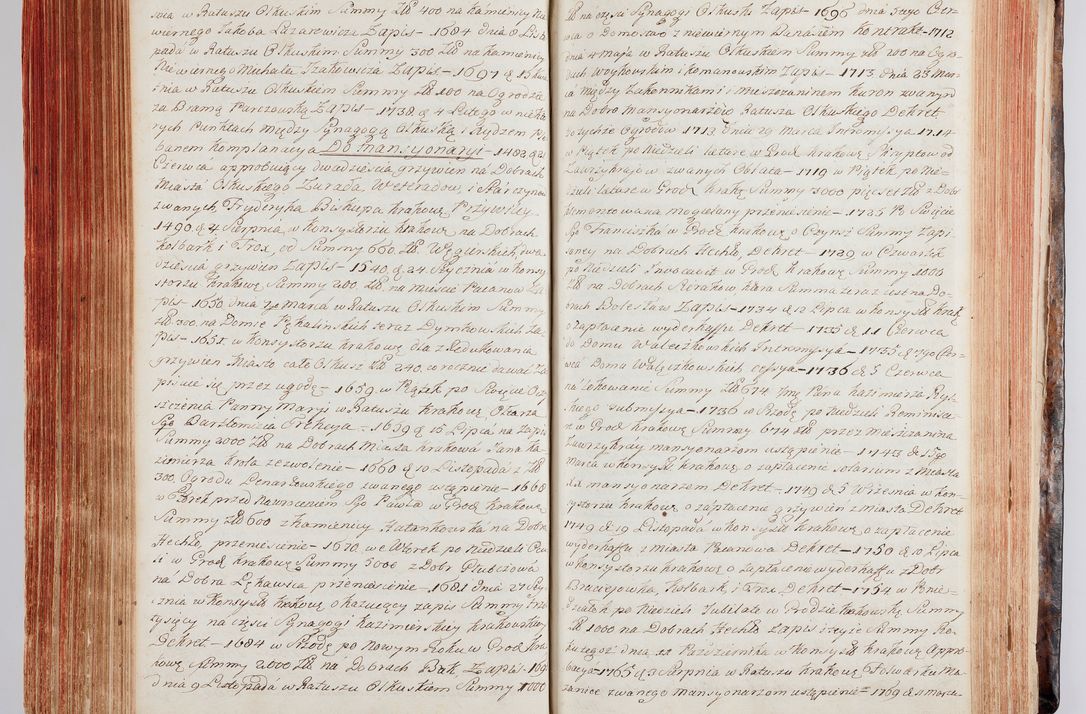 wia w Ratuszu Olkuskim Summy Zł 400 na kamienicy Nie
wiernego Jakoba Lazarowicza Zapis – 1684 dnia 6 Lis
pada w Ratuszu Olkuskim Summy 300 Zł na kamienicy
Niewiernego Michała Izakowicza Zapis – 1697 d 15 kwie
tnia w Ratuszu Olkuskim Summy Zł 100 na Ogrodzie
za Bramą Parczowską Zapis – 1738 d 4 Lutego w niektó
rych Punktach między Synagogą Olkuską i Xiędzem Ple
banem komplanacya Do Mansyonaryi – 1483 d 21
Czerwca approbujący dwadzieścia grzywien na Dobrach
Miasta Olkuskiego Żurada, Witeradow, i Parczynow
zwanych Fryderyka Biskupa krakowz Przywiley
1490 d 4 Sierpnia w konsystorzu krakowz na Dobrach
kolbark i Trox, od Summy 660 Zł Węgierskich, dwa
dzieścia grzywien Zapis – 1540 d 24 Stycznia w konsy
storzu krakowz Summy 200 Zł na mieście Pacanow Za
pis – 1650 dnia 20 Marca w Ratuszu Olkuskim Summy
Zł 300, na Domie Pękalinskich teraz Dymkowskich Za
pis – 1651 w konsystorzu krakowz dla zredukowania
grzywien Miasto całe Olkusz Zł 240, w rocznie dawać Za
pisuie się przez ugodę – 1659 w Piątek po Święcie Oczy
szczenia Panny Maryi w Ratuszu krakowz Ołtarza
Sgo Bartłomieia Erekcya – 1659 d 15 Lipca na Zapis
Summy 2000 Zł na Dobrach Miasta krakowa Jana ka
zimierza krola zezwolenie – 1660 d 10 Listopada z Zł
300, Ogrodu Lenartowskiego zwanego ustąpienie – 1668
w Piątek przed Nawroceniem Sgo Pawła w Grodz krakowz
Summy Zł 600 z kamienicy Hatankowska na Dobra
Hechło przeniesienie – 1670, we Wtorek po Niedzieli Prze
ti w Grod krakowz Summy 3000 z Dobr Głubczowa
na Dobra Łękawica przeniesienie – 1681 dnia 27 Sty
cznia w konsyst krakowz okazuiący zapis Summy Trze
tysięcy na części Synagogi Kazimierskiey krakowskiey
Dekret – 1684 w Srodę po Nowym Roku w Grod kra
kowz Summy 2000 Zł na Dobrach Bęk Zapis – 169
dnia 9 Listopada w Ratuszu Olkuskim Summy 1000
Zł na części Synagogi Olkuski Zapis – 1696 dnia 5tego Czer
wca o Domostwo z niewiernym Benasiem kontrakt – 1712
dnia 4 maja w Ratuszu Olkuskim Summy Zł 200 na Ogro
dach Woykowskim i komanowskim Zapis – 1713 dnia 23 Mar
ca między Zakonnikami i Mieszczaninem kuron zwanym
na Dobro Mansyonarzow Ratusza Olkuskiego Dekret
do tychże Ogrodow 1713 dnia 29 Marca Intromisya – 1714
w Piątek po Niedzieli latare w Grod krakowz Skryptow od
Zawrzykraiow zwanych Oblata – 1719 w Piątek po Nie
dzieli latare w Grod krakz Summy 3000 pięćset Zł z Dobr
klemontowa na mogielany przeniesienie – 1725 Po Święcie
Sgo Franciszka w Grod krakowz o Czynsz Summy Zapi
soney na Dobrach Hechło, Dekret – 1729 w Czwartek
po Niedzieli Invocavit w Grod krakowz Summy 1000
Zł na Dobrach Sierakow która Summa teraz iest na Do
brach Bolesław Zapis – 1734 d 12 Lipca w konsyst krak
o zapłacenie wyderkaffu Dekret – 1735 d 11 Czerwca
do Domu Waleczkowskich Intromisya – 1735 d 7go Czer
wca Domu Walczkowskich cessya – 1736 d 5 Czerwca
na lokowanie Summy Zł 674 Jmć Pana kazimierza Rylz
kiego submissya – 1736 w Srodę po Niedzieli Reminisce
re w Grod krakowz Summy 674 Zł przez Mieszczanina
Zawrzykray mansyonarzom ustąpienie – 1743 d 15go
Marca w konsyst krakowz o zapłacenie solarium z Miasta
dla mansyonarzow Dekret – 1749 d 5 Września w kon
systorzu krakowz o zapłacenie grzywien z miasta Dekret
1749 d 19 Listopada w konsyst krakowz o zapłacenie
wyderkaffu z miasta Pacanowa Dekret – 1750 d 10 Lipca
w konsystorzu krakowz o zapłacenie wyderkaffu z Dobr
Braciejowka, Kolbark, i Trox Dekret – 1754 w Ponie
działek po Niedzieli Jubilate w Grodzie krakowskz Summy
Zł 1000 na Dobrach Hechło Zapis i teyże Summy Ro
ku tegoż dnia 22 Października w konsyst krakowz Appro
bacya – 1765 d 13 Sierpnia w Ratuszu krakowz 6 Folwarku Ma
zanice zwanego mansyonarzom ustąpienie – 1769 d 11 marca